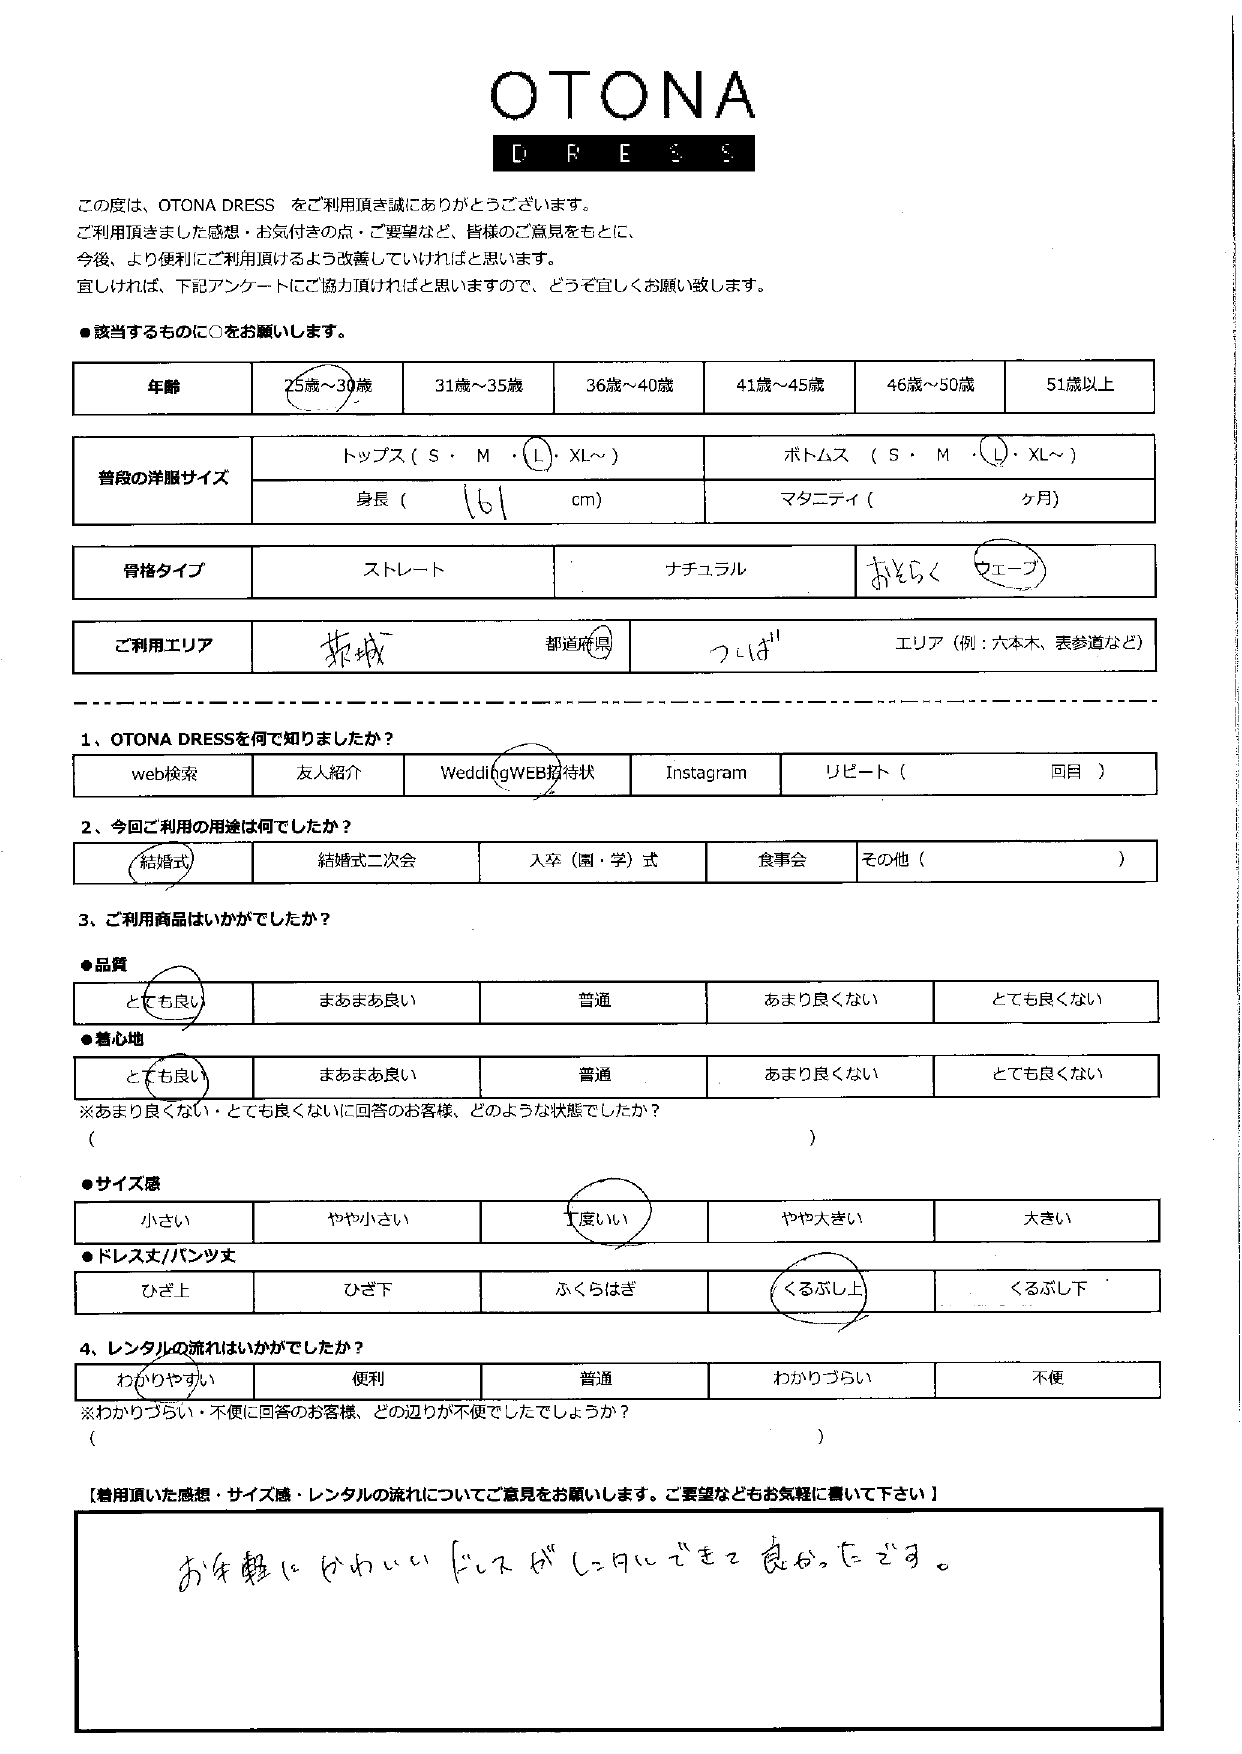 OTONA
DRESS
この度は、OTONA DRESS　をご利用頂き誠にありがとうございます。
ご利用頂きました感想・お気付きの点・ご要望など、皆様のご意見をもとに、
今後、より便利にご利用頂けるよう改善していければと思います。
宜しければ、下記アンケートにご協力頂ければと思いますので、どうぞ宜しくお願い致します。
●該当するものに○をお願いします。
年齢 25歳～30歳 31歳～35歳 36歳～40歳 41歳～45歳 46歳～50歳 51歳以上
普段の洋服サイズ トップス ( S ・ M ・ L ・ XL～ ) ボトムス ( S ・ M ・ L ・ XL～ )
身長 ( 161 cm) マタニティ ( ヶ月)
骨格タイプ ストレート ナチュラル おそらく ウェーブ
ご利用エリア 茨城 都道府県 つくば エリア（例：六本木、表参道など）
1、OTONA DRESSを何で知りましたか？
web検索 友人紹介 WeddingWEB招待状 Instagram リピート（ 回目 ）
2、今回ご利用の用途は何でしたか？
結婚式 結婚式二次会 入卒（園・学）式 食事会 その他（ ）
3、ご利用商品はいかがでしたか？
●品質
とても良い まあまあ良い 普通 あまり良くない とても良くない
●着心地
とても良い まあまあ良い 普通 あまり良くない とても良くない
※あまり良くない・とても良くないに回答のお客様、どのような状態でしたか？
（ ）
●サイズ感
小さい やや小さい 丁度いい やや大きい 大きい
●ドレス丈/パンツ丈
ひざ上 ひざ下 ふくらはぎ くるぶし上 くるぶし下
4、レンタルの流れはいかがでしたか？
わかりやすい 便利 普通 わかりづらい 不便
※わかりづらい・不便に回答のお客様、どの辺りが不便でしたでしょうか？
（ ）
【着用頂いた感想・サイズ感・レンタルの流れについてご意見をお願いします。ご要望などもお気軽に書いて下さい】
お手軽にかわいいドレスがレンタルできて良かったです。